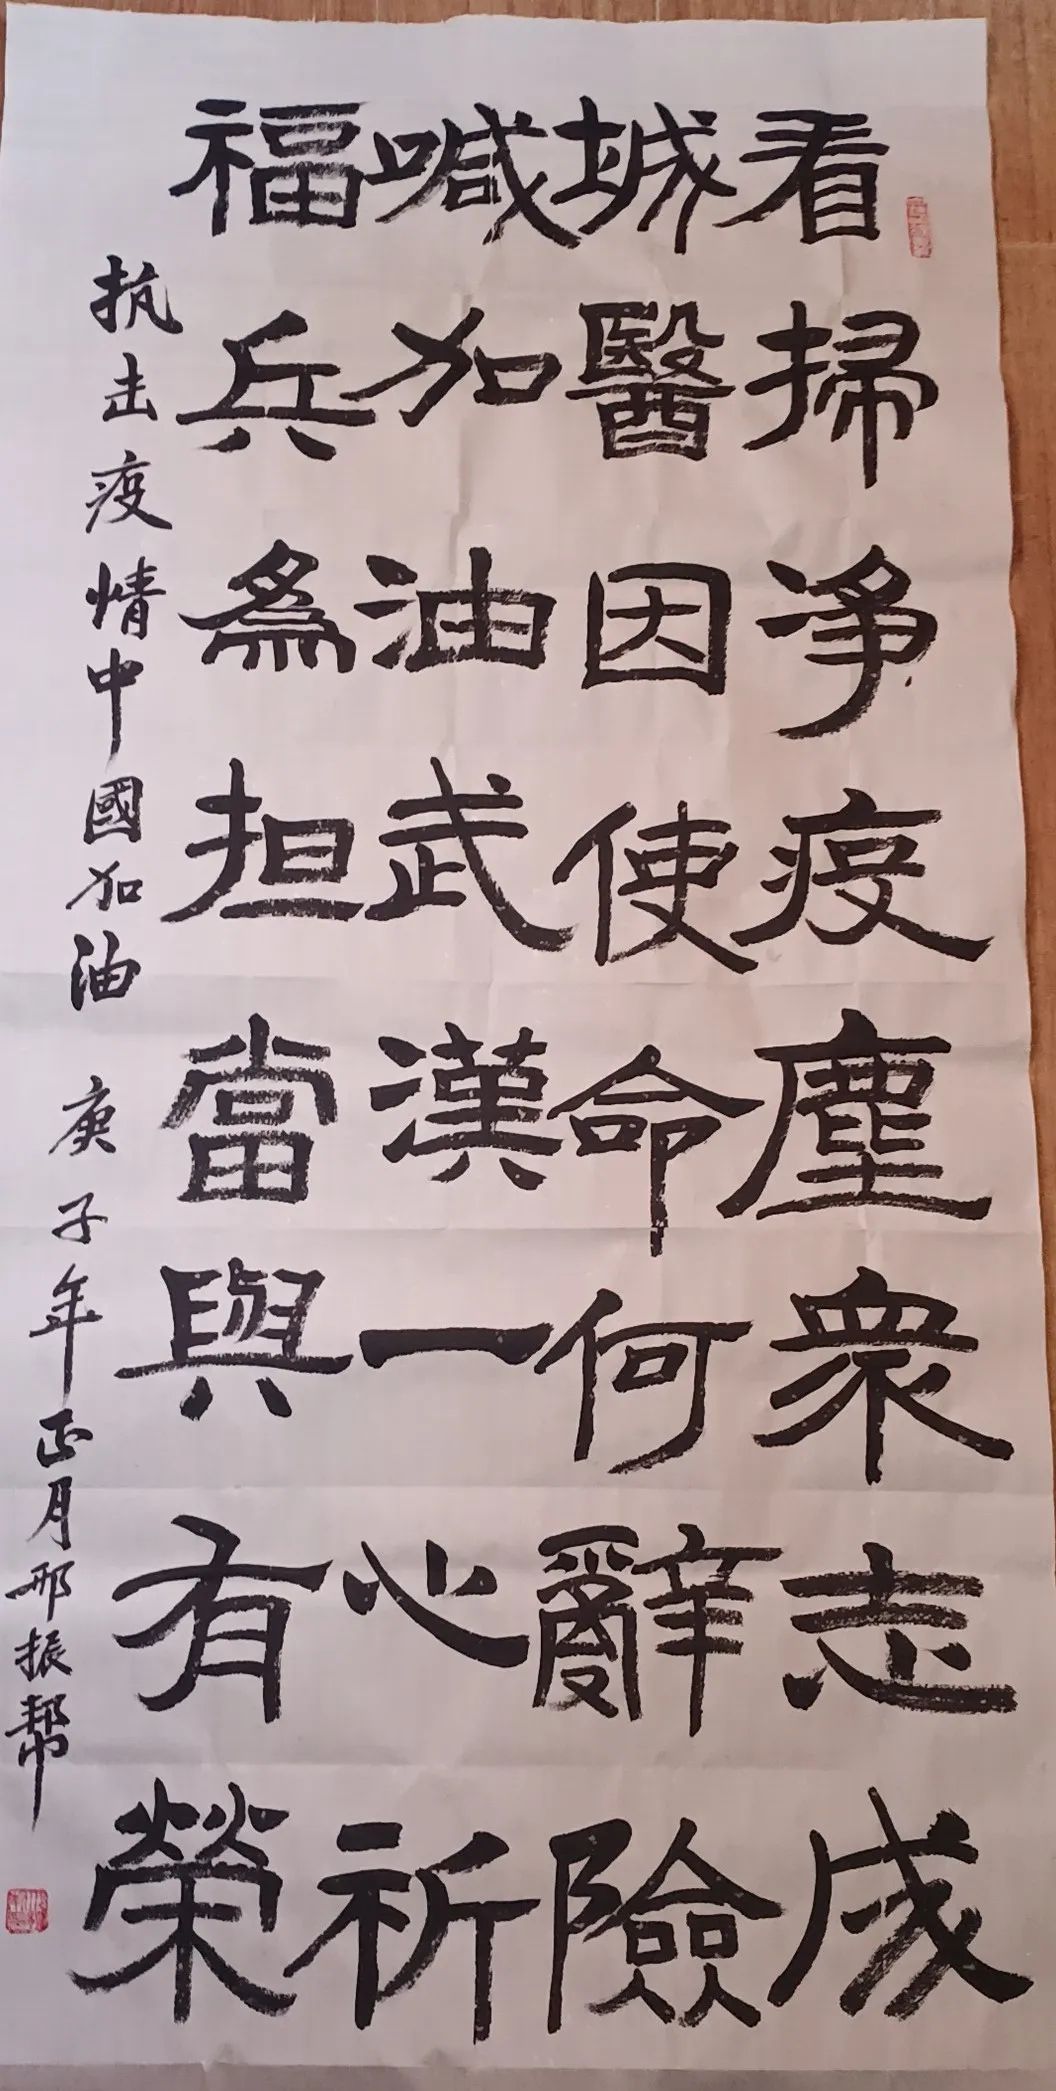 看掃净疫塵衆志成
城醫因使命何辭險
喊加油武漢一心祈
福兵為担當與有榮
抗击疫情中國加油 庚子年正月邢振幫